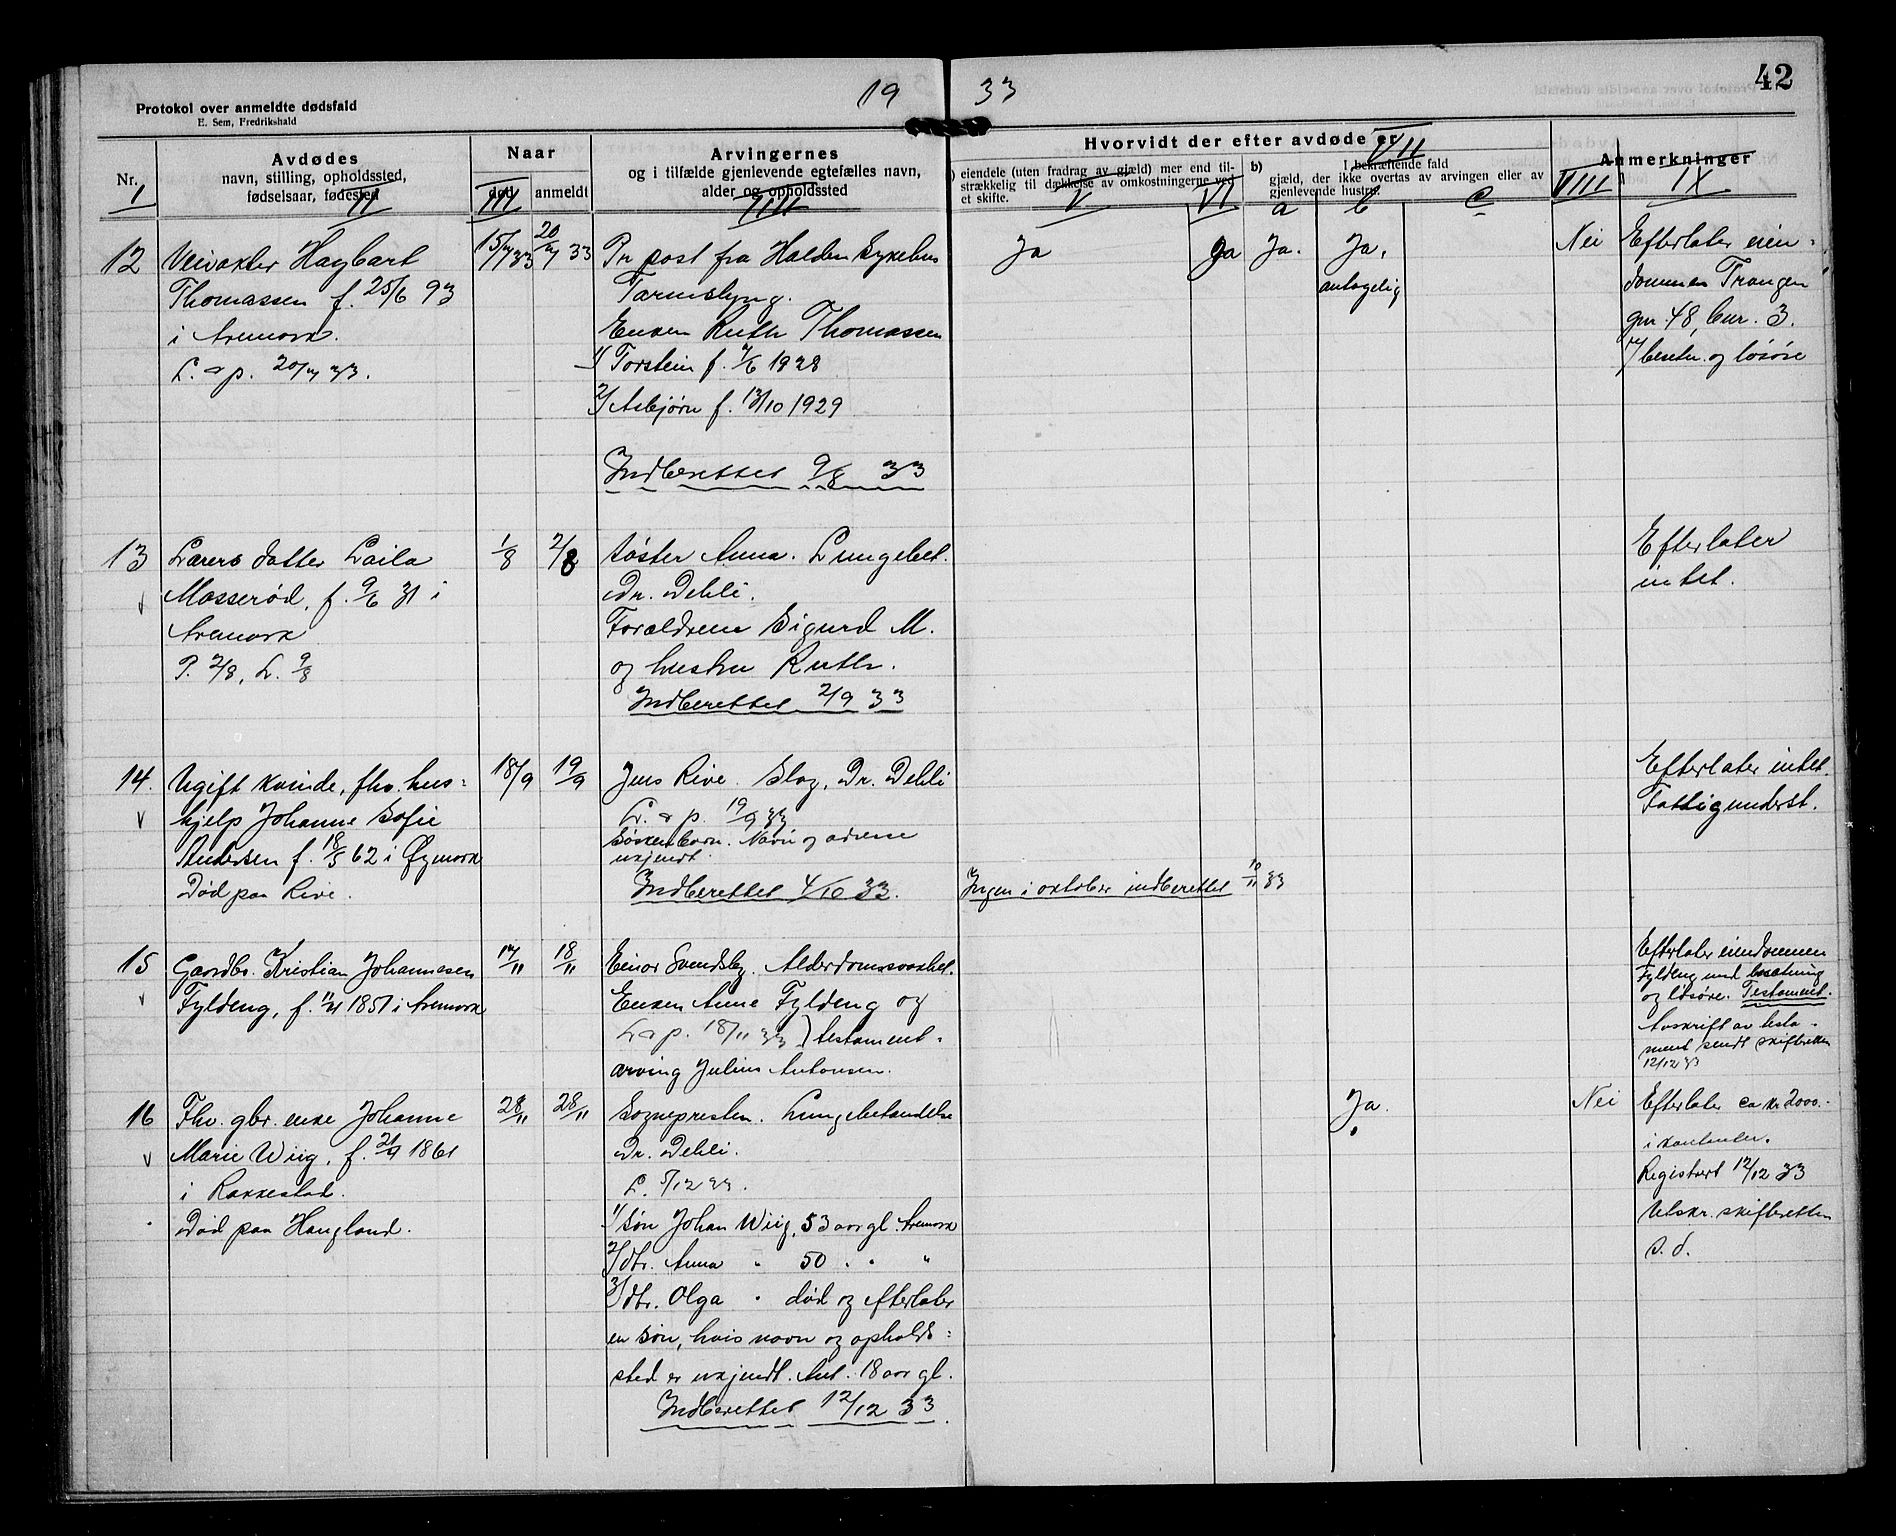 19 33
42
Protokol over anmeldte dødsfald
E. Sem, Fredrikshald
Nr.
1
Avdødes
navn, stilling, opholdssted,
fødselsaar, fødested
II
Naar
død
anmeldt
III
Arvingernes
og i tilfælde gjenlevende egtefælles navn,
alder og opholdssted
IIII
Hvorvidt der efter avdøde er
VII
) eiendele (uten fradrag av gjæld) mer end til-
strækkelig til dækkelse av omkostningerne ved
et skifte.
V
VI
b)
I bekræftende fald
gjæld, der ikke overtas av arvingen eller av
gjenlevende hustru.
a
b
c
VIII
Anmerkninger
IX
12
Veivokter Haybart
Thomassen f. 25/6 93
i Aremark.
L. o p. 20/7 33.
15/7 33
20/7 33
Pr post fra Halden Sykehus
Tarmslyng.
Enken Ruth Thomassen
1/ Torstein f. 7/6 1928
2/ Asbjørn f. 13/10 1929
Indberettet 9/8 33
Ja
Ja
Ja.
Ja,
antagelig
Nei
Efterlater eien-
dommen Trangen
gnr 48, bnr. 3.
m/ besetn. og løsøre
13
Lærers datter Laila
Mosserød, f. 9/6 31 i
Aremark
P. 2/8, L. 9/8
1/8
2/8
søster Anna. Lungebet.
Dr. Dehli.
Forældrene Sigurd M.
og hustru Ruth.
Indberettet 2/9 33
Efterlater
intet.
14.
Ugift kvinde, fhv. hus-
hjelp Johanne Sofie
Andersen f. 18/5 62 i Øymark
Død paa Rive.
18/9
19/9
Jens Rive. Slag, Dr. Dehli
L. o p. 19/9 33
Søskenbarn. Navn og adresse
ukjendt.
Indberettet 4/10 33.
Ingen i oktober indberettet 10/11 33
Efterlater intet.
Fattigunderst.
15
Gaardbr. Kristian Johannesen
Fyldeng, f. 1851 i Aremark
17/11
18/11
Einar Svendsby. Alderdomssvakhet.
Enken Anne Fyldeng og
L o p. 18/11 33 ) testament-
arving Julius Antonsen.
Efterlater eiendommen
Fyldeng med besætning
og løsøre. Testament.
Avskrift av testa-
ment sendt skifteretten
12/12 33
16
Fhv. gbr. enke Johanne
Marie Wiig, f. 21/9 1861
i Rakkestad.
Død paa Haugland.
28/11
28/11
Sognepresten. Lungebetændelse
Dr. Dehli.
L. 5/12 33.
1/ søn Johan Wiig, 53 aar gl. Aremark
2/ dtr. Anna " 50 " " "
3/ dtr. Olga " død og efterlater
en søn, hvis navn og opholds-
sted er ukjendt. Ant. 18 aar gl.
Indberettet 12/12 33.
Ja.
Nei
Efterlater ca kr 2000.-
i kontanter.
Registrert 12/12 33
Utskr. skifteretten
s. d.